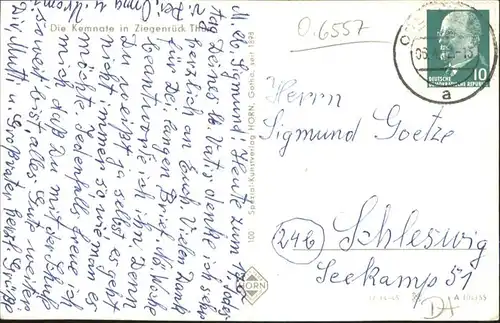 Die Kemnate in Ziegenrück Thür.
M. lb. Sigmund! Heute zum
tag Deines lb. Vatis denke ich sehr
herzlich an Euch. Vielen Dank
für Den langen Brief. Nä. Woche
beantworte ich ihn. Denn
Du weißt ja selbst, es geht
nicht immer so wie man es
möchte. Jedenfalls freue ich
mich, daß Du mit der Schule
soweit bist, alles Gute weiter.
Div. Mutti u. Großvater herzl. Grüße
100 Spezial-Kunstverlag HORN, Gotha, seit 1898
HORN
0.6557
DEUTSCHE
DEMOKRATISCHE REPUBLIK
10
a
Herrn
Sigmund Goetze
(24b) Schleswig
Seekamp 51